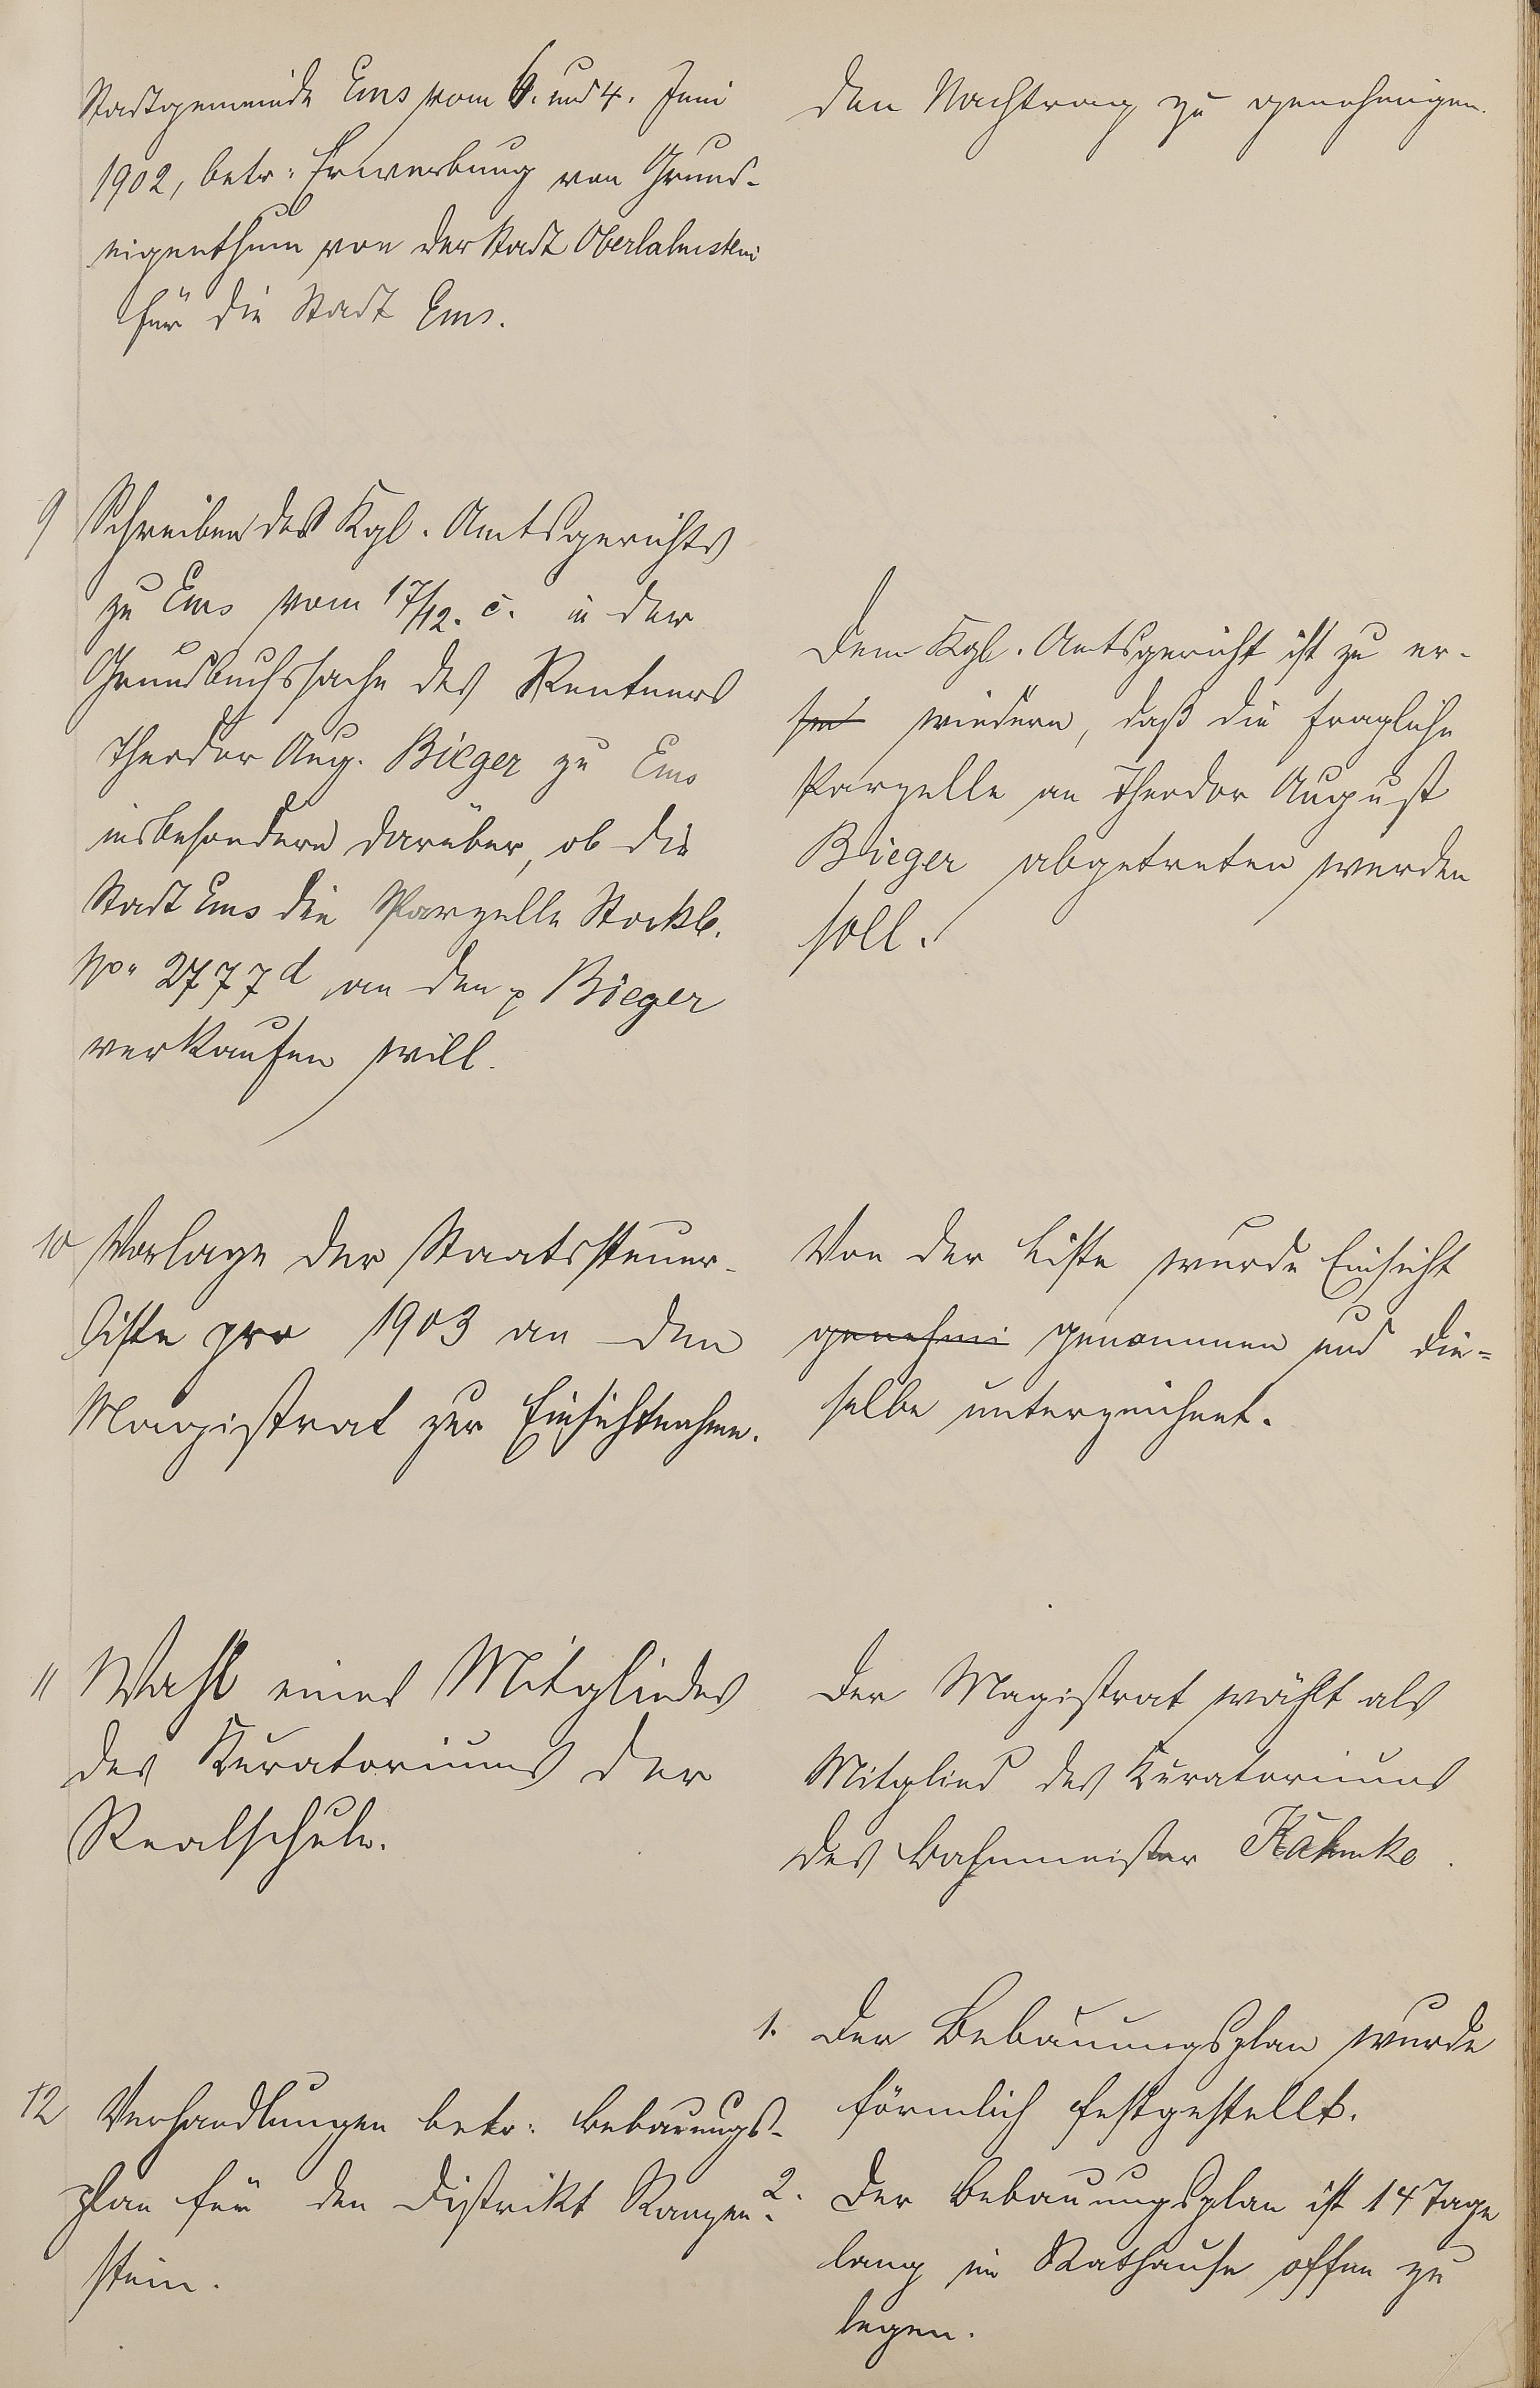 Stadtgemeinde Ems vom 6. und 4. Juni
1902, betr. Erwerbung von Grund-
eigenthum von der Stadt Oberlahnstein
für die Stadt Ems.
den Nachtrag zu genehmigen.
9 Schreiben des Kgl. Amtsgerichts
zu Ems vom 17/12. c. in der
Grundbuchsache des Rentners
Theodor Aug. Bieger zu Ems
insbesondere darüber, ob die
Stadt Ems die Parzelle Stockb.
No. 2777d an den p Bieger
verkaufen will.
Dem Kgl. Amtsgericht ist zu er-
widern, daß die fragliche
Parzelle an Theodor August
Bieger abgetreten werden
soll.
10 Vorlage der Staatssteuer-
liste pro 1903 an den
Magistrat zur Einsichtnahme.
Von der Liste wurde Einsicht
genehmi genommen und die=
selbe unterzeichnet.
11 Wahl eines Mitgliedes
des Kuratoriums der
Realschule.
Der Magistrat wählt als
Mitglied des Kuratoriums
des Bahnmeister
12 Verhandlungen betr. Bebauungs-
plan für den Distrikt
stein.
1. Der Bebauungsplan wurde
förmlich festgestellt.
2. Der Bebauungsplan ist 14 Tage
lang im Rathause offen zu
legen.